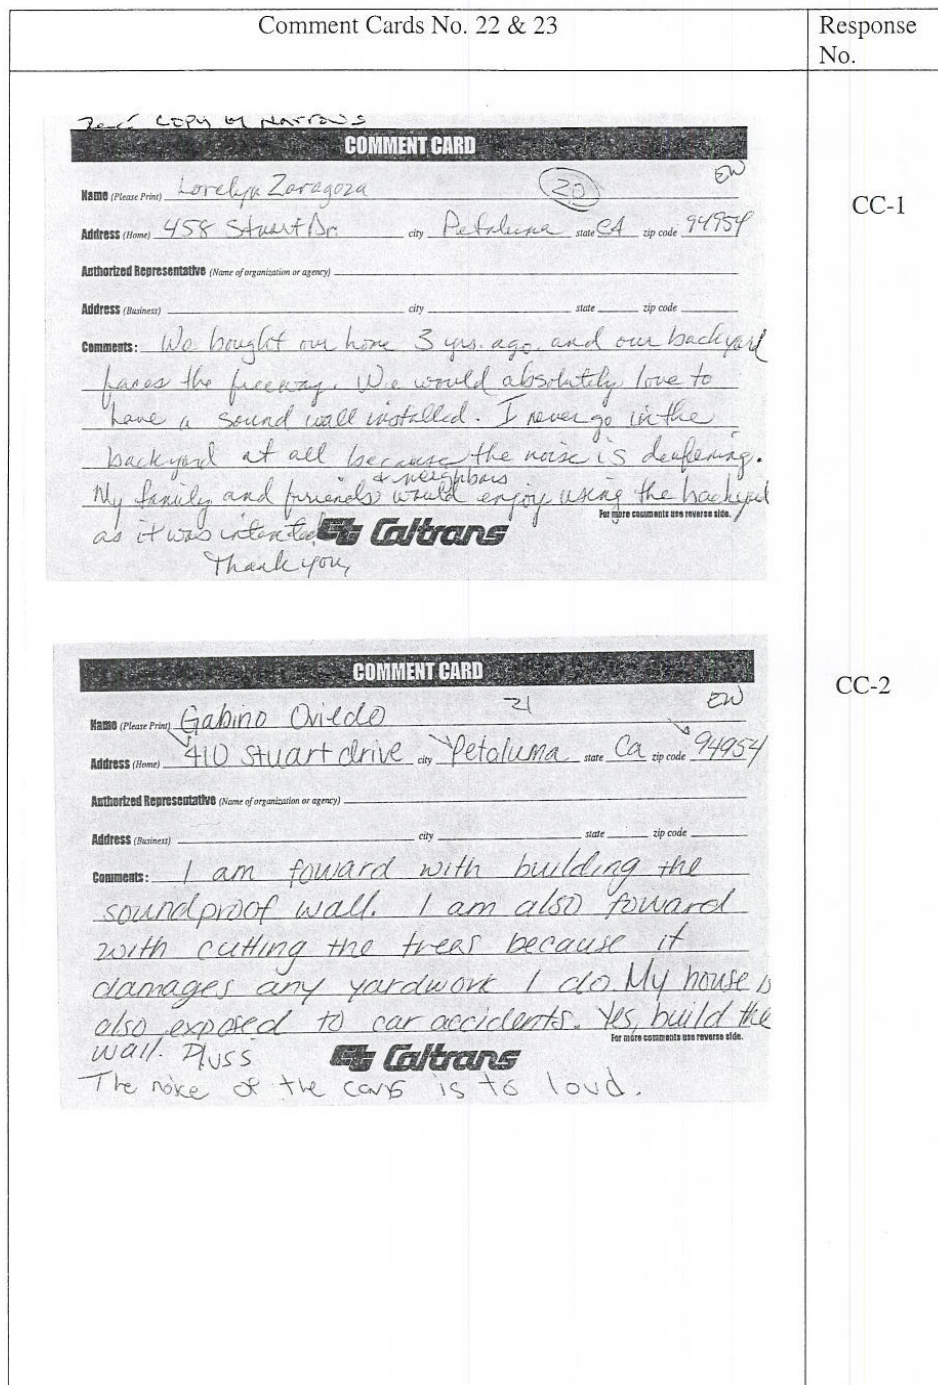 Comment Cards No. 22 & 23
Response
No.
COPY of NARROWS
COMMENT CARD
EW
Name (Please Print) Lorelyn Zaragoza 20
CC-1
Address (Home) 458 Stuart Dr. city Petaluma state CA zip code 94954
Authorized Representative (Name of organization or agency)
Address (Business) city state zip code
Comments: We bought our home 3 yrs. ago. and our backyard
faces the freeway. We would absolutely love to
have a sound wall installed. I never go in the
backyard at all because the noise is deafening.
& neighbors
My family and friends would enjoy using the backyard
For more comments use reverse side.
as it was intended. Caltrans
Thank you,
COMMENT CARD
CC-2
Name (Please Print) Gabino Oviedo 21 EW
Address (Home) 410 Stuart drive city Petaluma state Ca zip code 94954
Authorized Representative (Name of organization or agency)
Address (Business) city state zip code
Comments: I am foward with building the
soundproof wall. I am also foward
with cutting the trees because it
damages any yardwork I do. My house is
also exposed to car accidents. Yes, build the
For more comments use reverse side.
wall. Pluss Caltrans
The noise of the cars is to loud.